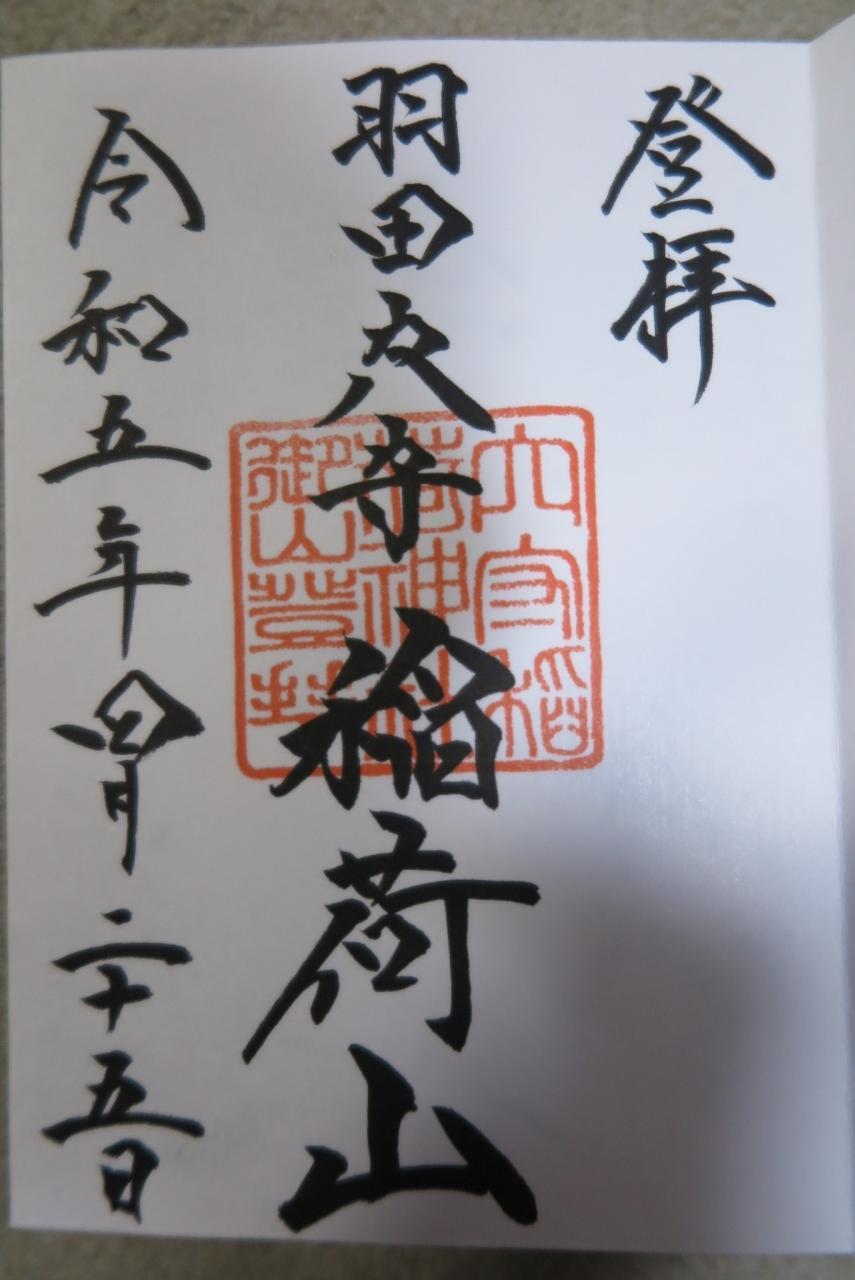 登拝
羽田穴守稲荷山
令和五年四月二十五日
穴守稲
荷神社
御山登拝